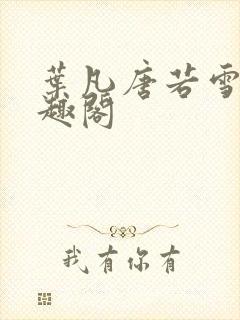 葉凡唐若雪
趣閣
我有你有